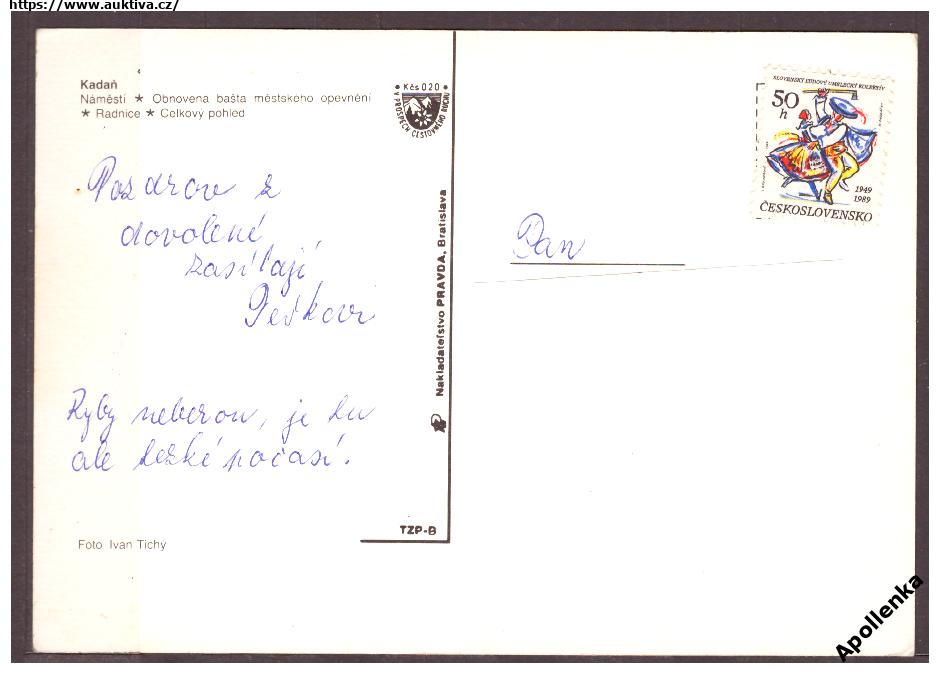 https://www.auktiva.cz/
Kadaň
Náměstí ★ Obnovena bašta městského opevnění
★ Radnice ★ Celkový pohled
Kčs 0,20
V PROSPĚCH CESTOVNÉHO RUCHU
Pozdrav z
dovolené
zasílají
Peškovi
Ryby neberou, je tu
ale hezké počasí.
Nakladateľstvo PRAVDA, Bratislava
TZP-B
Foto Ivan Tichý
SLOVENSKÝ ĽUDOVÝ UMELECKÝ KOLEKTÍV
50
h
1949
1989
ČESKOSLOVENSKO
Pan
Apollenka